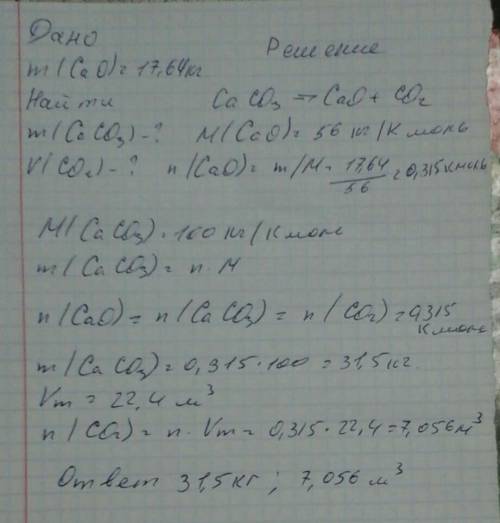 Дано
Решение
m(CaO)=17,64кг
Найти CaCO₃ = CaO + CO₂
m(CaCO₃)-? M(CaO)= 56 кг/Кмоль
V(CO₂)-? n(CaO)= m/M = 17,64/56 = 0,315 кмоль
M(CaCO₃)=100 кг/Кмоль
m(CaCO₃)= n·M
n(CaO)= n(CaCO₃)= n(CO₂)=0,315
Кмоль
m(CaCO₃)=0,315·100 = 31,5 кг.
Vm = 22,4 м³
n(CO₂)= n·Vm= 0,315·22,4=7,056м³
Ответ 31,5 кг; 7,056 м³